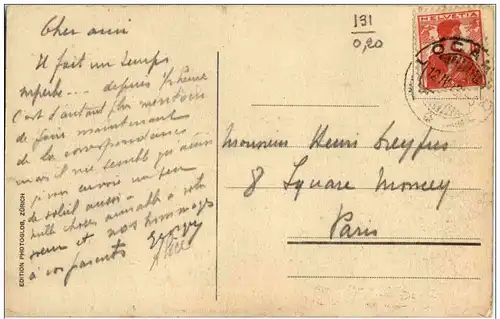 Cher ami
Il fait un temps
superbe... depuis 1/2 heure
C'est d'autant plus méritoire
de faire maintenant
de la correspondance
mais il me semble qu'ainsi
j'vous envoie un peu
de soleil aussi -
mille choses aimables à votre
soeur et nos hommages
à vos parents
131
0,20
HELVETIA
LOCA
Monsieur Henri Dreyfus
8 Square Moncey
Paris
EDITION PHOTOGLOB, ZÜRICH